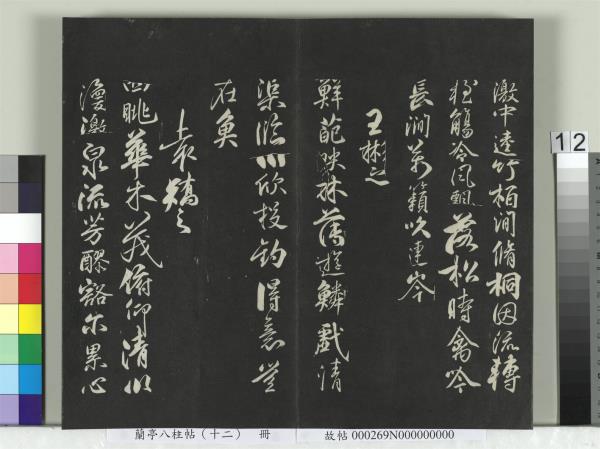 激中逵竹栢澗脩桐因流轉
輕觴冷風飄落松時禽吟
長澗萬籟吹連岑
王彬之
鮮葩暎林薄遊鱗戲清
渠臨川欣投釣得意豈
在魚
袁嶠之
四眺華木茂俯仰清川
激泉流芳醪豁尔累心
蘭亭八柱帖（十二） 冊
故帖 000269N000000000
12